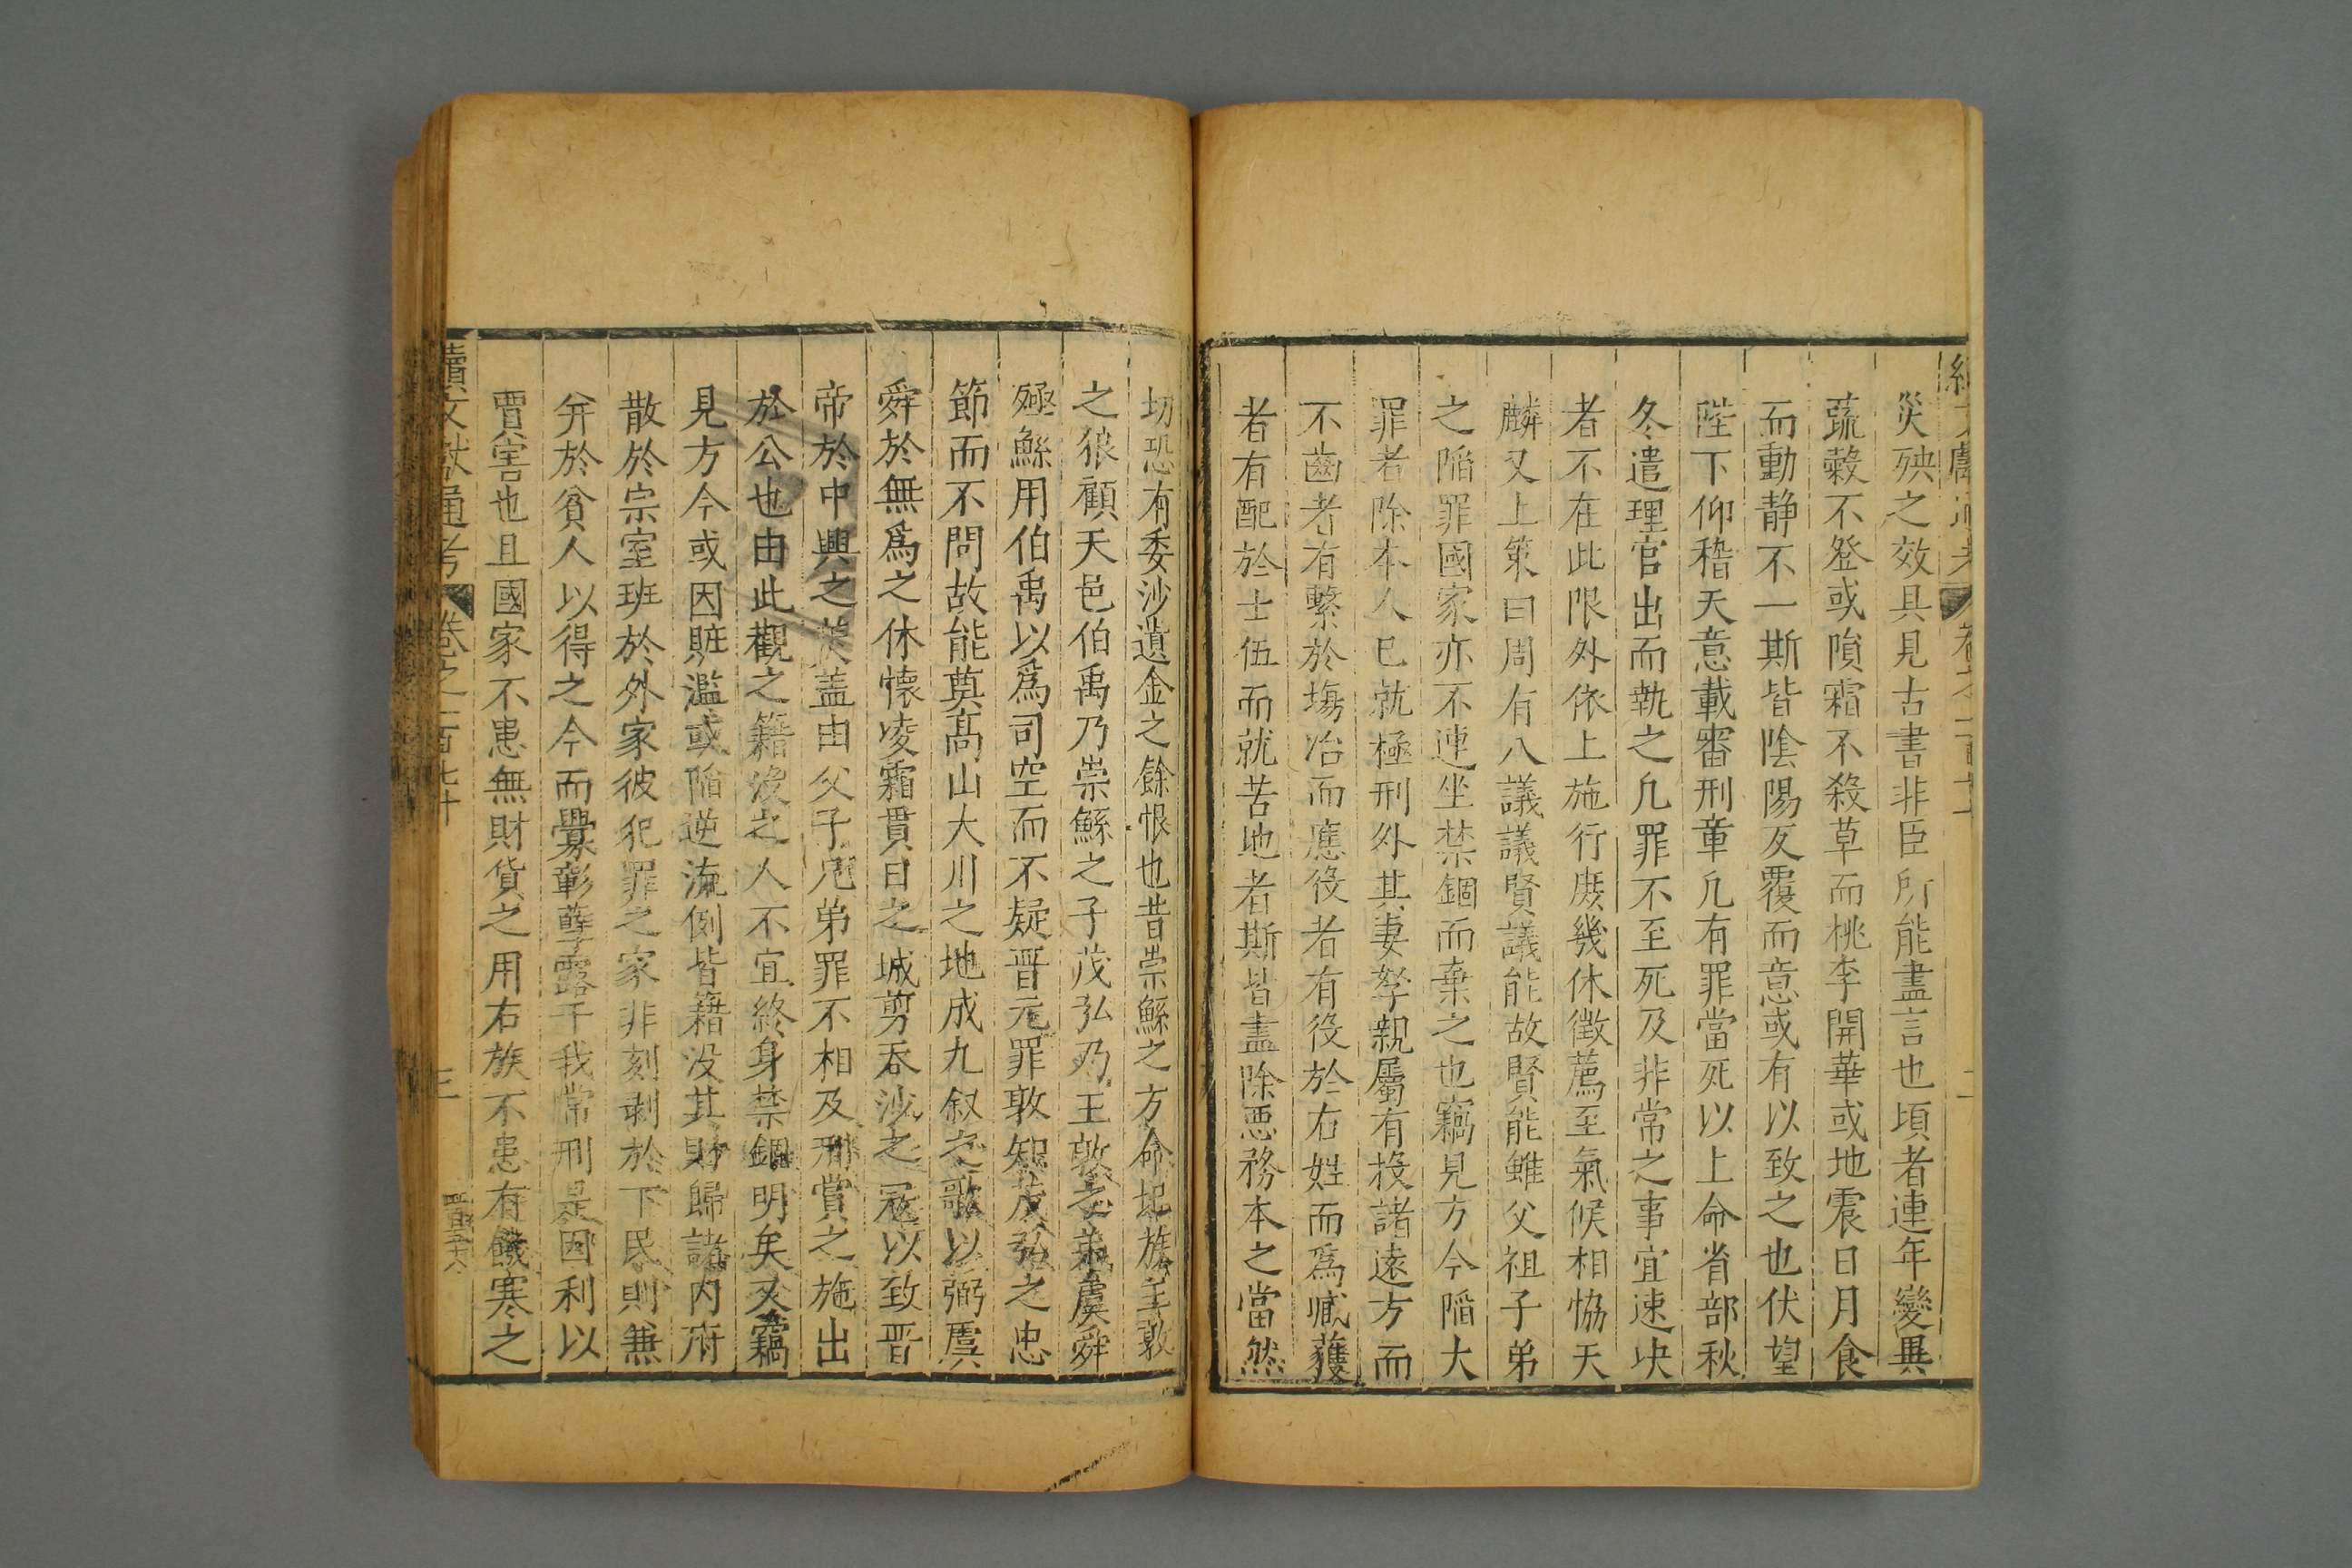 災殃之效具見古書非臣所能盡言也頃者連年變異
蔬穀不登或隕霜不殺草而桃李開華或地震日月食
而動静不一斯皆陰陽反覆而意或有以致之也伏望
陛下仰稽天意載審刑章凡有罪當死以上命省部秋
冬遣理官出而執之凡罪不至死及非常之事宜速决
者不在此限外依上施行庶幾休徵薦至氣候相恊天
麟又上策曰周有八議議賢議能故賢能雖父祖子弟
之䧟罪國家亦不連坐禁錮而棄之也竊見方今䧟大
罪者除本人已就極刑外其妻孥親屬有投諸遠方而
不齒者有繫於塲冶而應役者有役於右姓而爲臧獲
者有配於士伍而就苦地者斯皆盡除惡務本之當然
切恐有委沙遺金之餘恨也昔崇鯀之方命圮族王敦
之狼顧天邑伯禹乃崇鯀之子茂弘乃王敦之弟虞舜
殛鯀用伯禹以爲司空而不疑晋元罪敦知茂弘之忠
節而不問故能奠髙山大川之地成九叙之歌以弼虞
舜於無爲之休懐凌霜貫日之城剪呑沙之冦以致晋
帝於中興之業盖由父子兄弟罪不相及刑賞之施出
於公也由此觀之籍没之人不宜終身禁錮明矣又竊
見方今或因賍濫或䧟逆流例皆籍没其財歸諸内府
散於宗室班於外家彼犯罪之家非刻剥於下民則兼
并於貧人以得之今而釁彰孽露干我常刑是因利以
賈害也且國家不患無財貨之用右族不患有饑寒之
續文獻通考 卷之一百七十 三